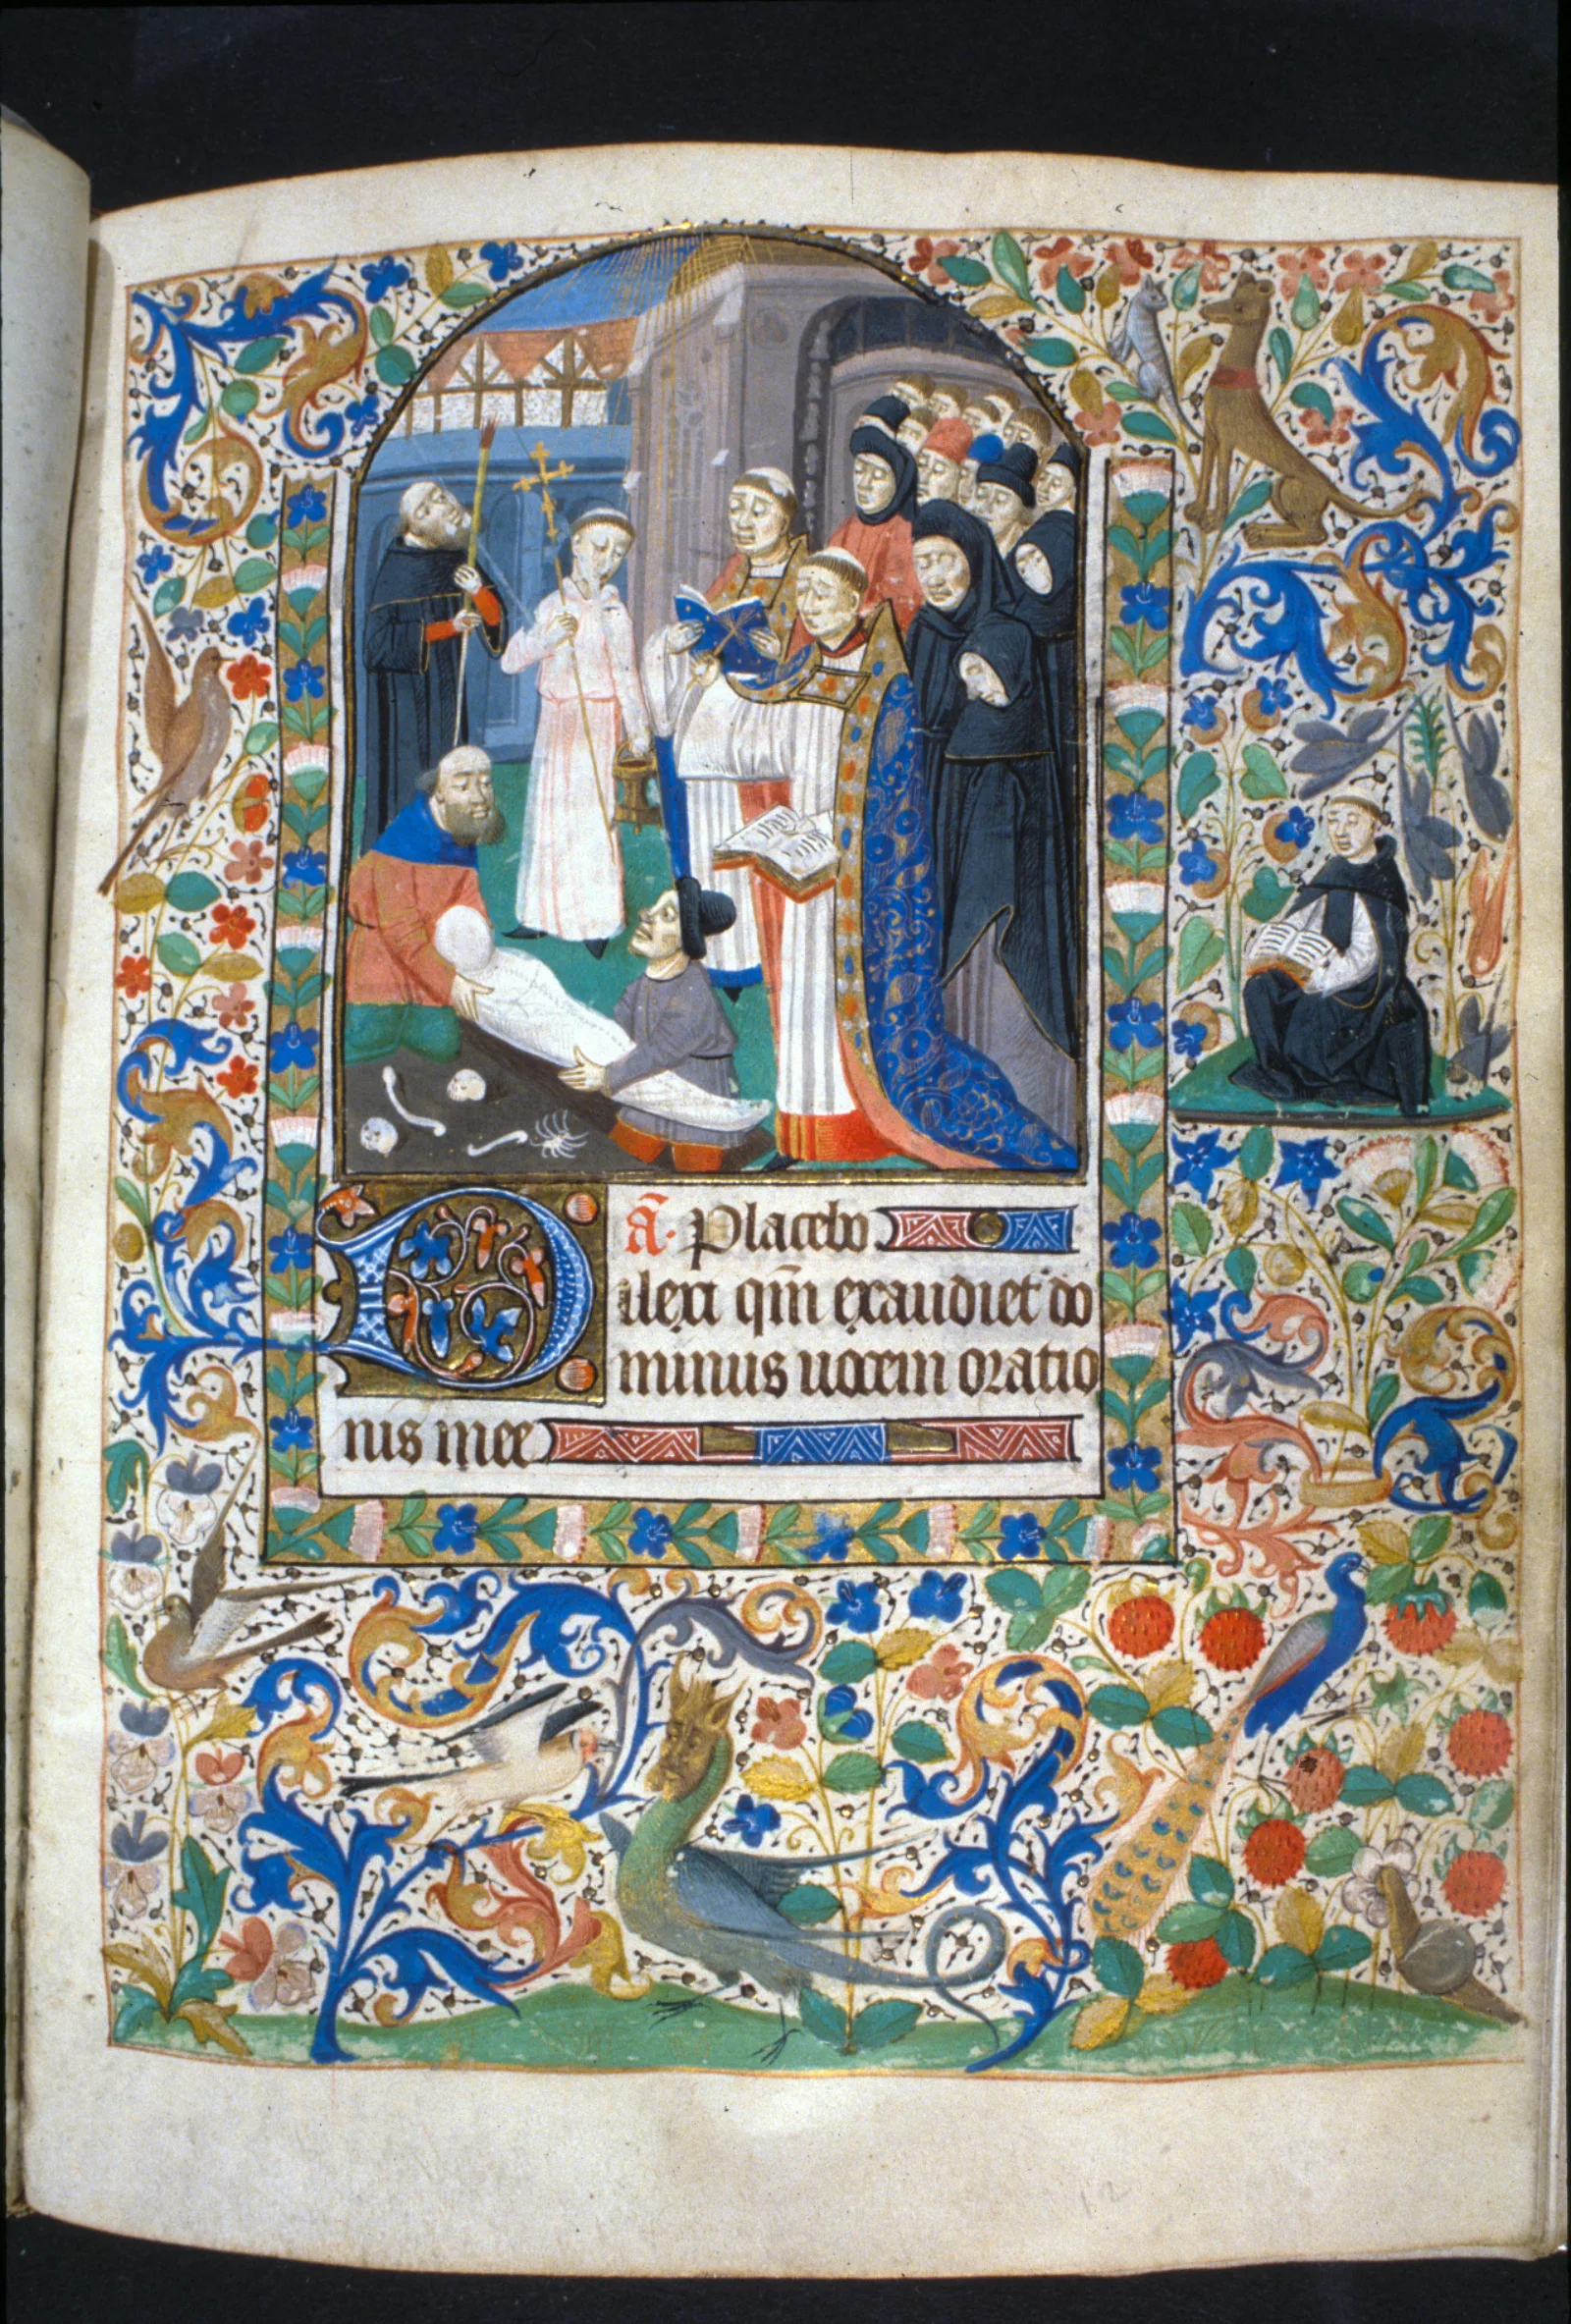 a̅. Placebo
Dilexi qm̅ exaudiet do
minus uocem oratio
nis mee
12